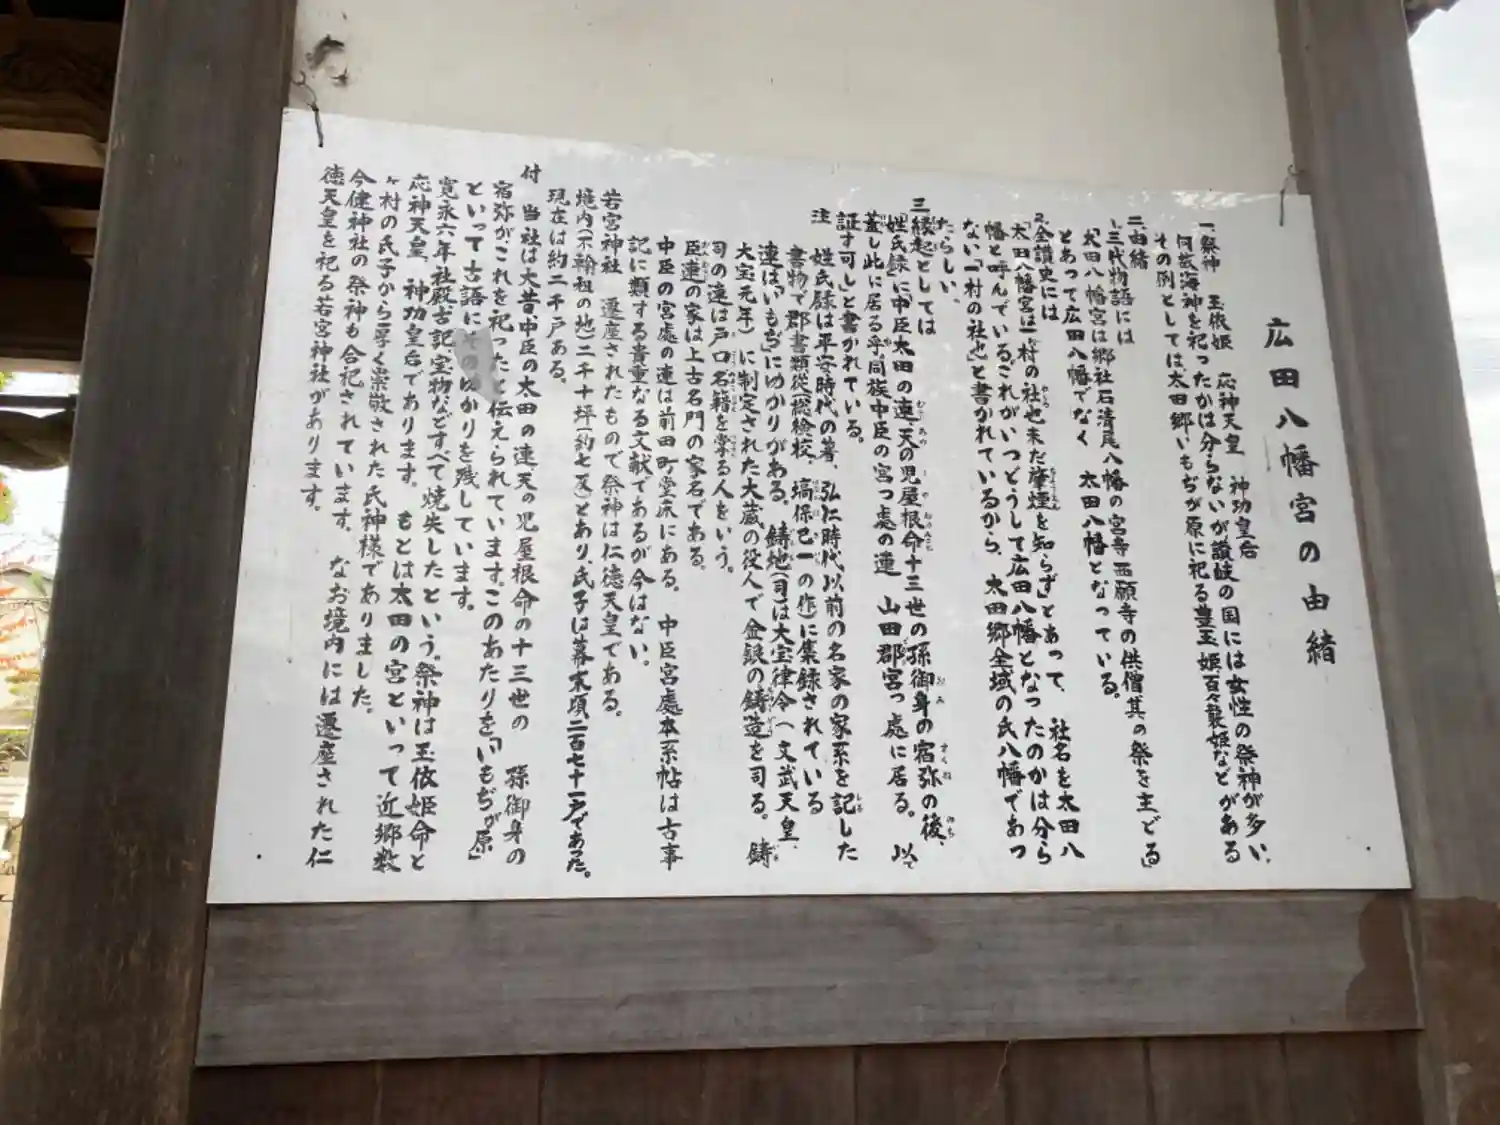 広田八幡宮の由緒
一、祭神 玉依姫 応神天皇 神功皇后
何故海神を祀ったかは分らないが讃岐の国には女性の祭神が多い、
その例としては太田郷いもぢが原に祀る豊玉姫百々襲姫などがある
二、由緒
1.三代物語には
「太田八幡宮は郷社石清尾八幡の宮寺西願寺の供僧其の祭を主どる」
とあって広田八幡でなく 太田八幡となっている。
2.全讃史には
「太田八幡宮は一村の社也未だ肇煙を知らず」とあって、社名を太田八
幡と呼んでいる。これがいつどうして広田八幡となったのかは分ら
ない「一村の社也」と書かれているから、太田郷全域の氏八幡であっ
たらしい。
三、縁起としては
「姓氏録」に「中臣太田の連、天の児屋根命十三世の孫御身の宿弥の後、
蓋し此に居る乎同族中臣の宮っ處の連 山田郡宮っ處に居る。以て
証す可し」と書かれている。
注 姓氏録は平安時代の著、弘仁時代以前の名家の家系を記した
書物で郡書類従(総検校、塙保己一の作)に集録されている
連は、いもぢにゆかりがある。鋳地(司)は大宝律令(文武天皇、
大宝元年)に制定された大蔵の役人で金銀の鋳造を司る。鋳
司の連は戸口名籍を掌る人をいう。
臣連の家は上古名門の家名である。
中臣の宮處の連は前田町堂床にある。 中臣宮處本系帖は古事
記に類する貴重なる文献であるが今はない。
若宮神社 遷座されたもので祭神は仁徳天皇である。
境内(不輸祖の地)二千十坪(約七反)とあり、氏子は幕末頃二百七十一戸であった。
現在は約二千戸ある。
付 当社は大昔、中臣の太田の連天の児屋根命の十三世の 孫御身の
宿弥が、これを祀ったと伝えられています。このあたりを「いもぢが原」
といって古語にそのゆかりを残しています。
寛永六年社殿古記宝物などすべて焼失したという。祭神は玉依姫命と
応神天皇、神功皇后であります。もとは太田の宮といって近郷数
ヶ村の氏子から厚く崇敬された氏神様でありました。
今健神社の祭神も合祀されています。 なお境内には遷座された仁
徳天皇を祀る若宮神社があります。